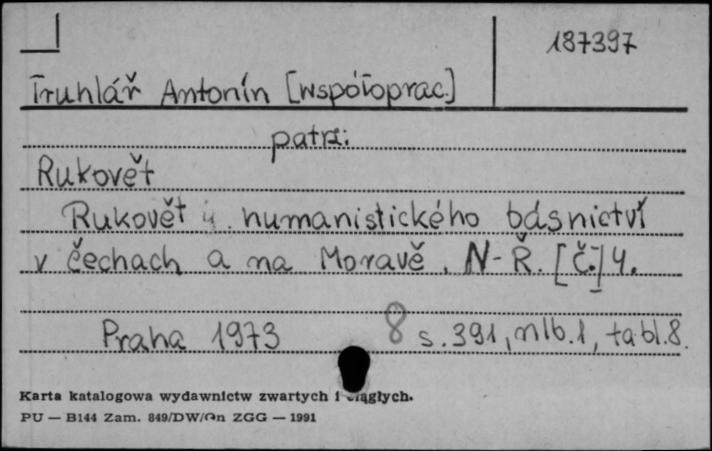 187397
Truhlář Antonín [współoprac.]
patrz:
Rukovět
Rukovět humanistického básnictví
v Čechach a na Moravě. N-Ř. [Č.] 4.
Praha 1973 8 s. 391, nlb. 1, tabl. 8.
Karta katalogowa wydawnictw zwartych i ciągłych.
PU — B144 Zam. 849/DW/On ZGG — 1991